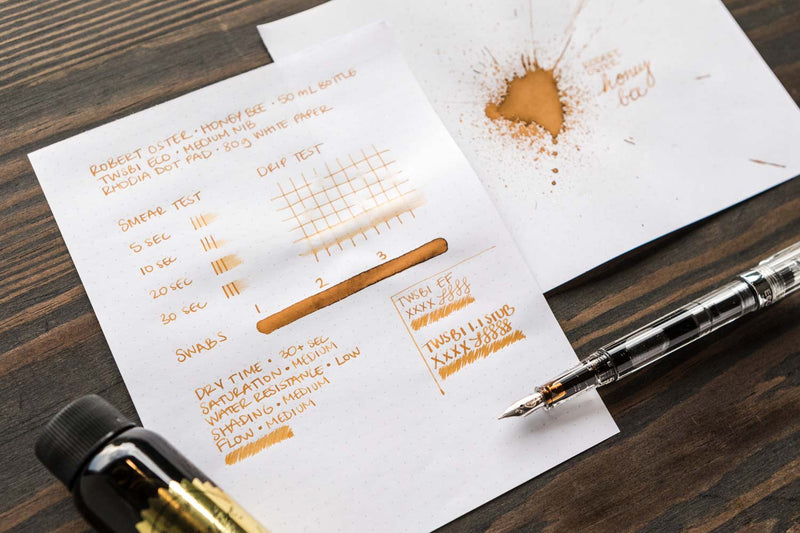 ROBERT OSTER • HONEY BEE • 50 ML BOTTLE
TWSBI ECO • MEDIUM NIB
RHODIA DOT PAD • 80g WHITE PAPER
SMEAR TEST
5 SEC
10 SEC
20 SEC
30 SEC
DRIP TEST
SWABS
1 2 3
DRY TIME • 30+ SEC
SATURATION • MEDIUM
WATER RESISTANCE • LOW
SHADING • MEDIUM
FLOW • MEDIUM
TWSBI EF
XXXX
TWSBI 1.1 STUB
XXXX
ROBERT
OSTER
honey
bee